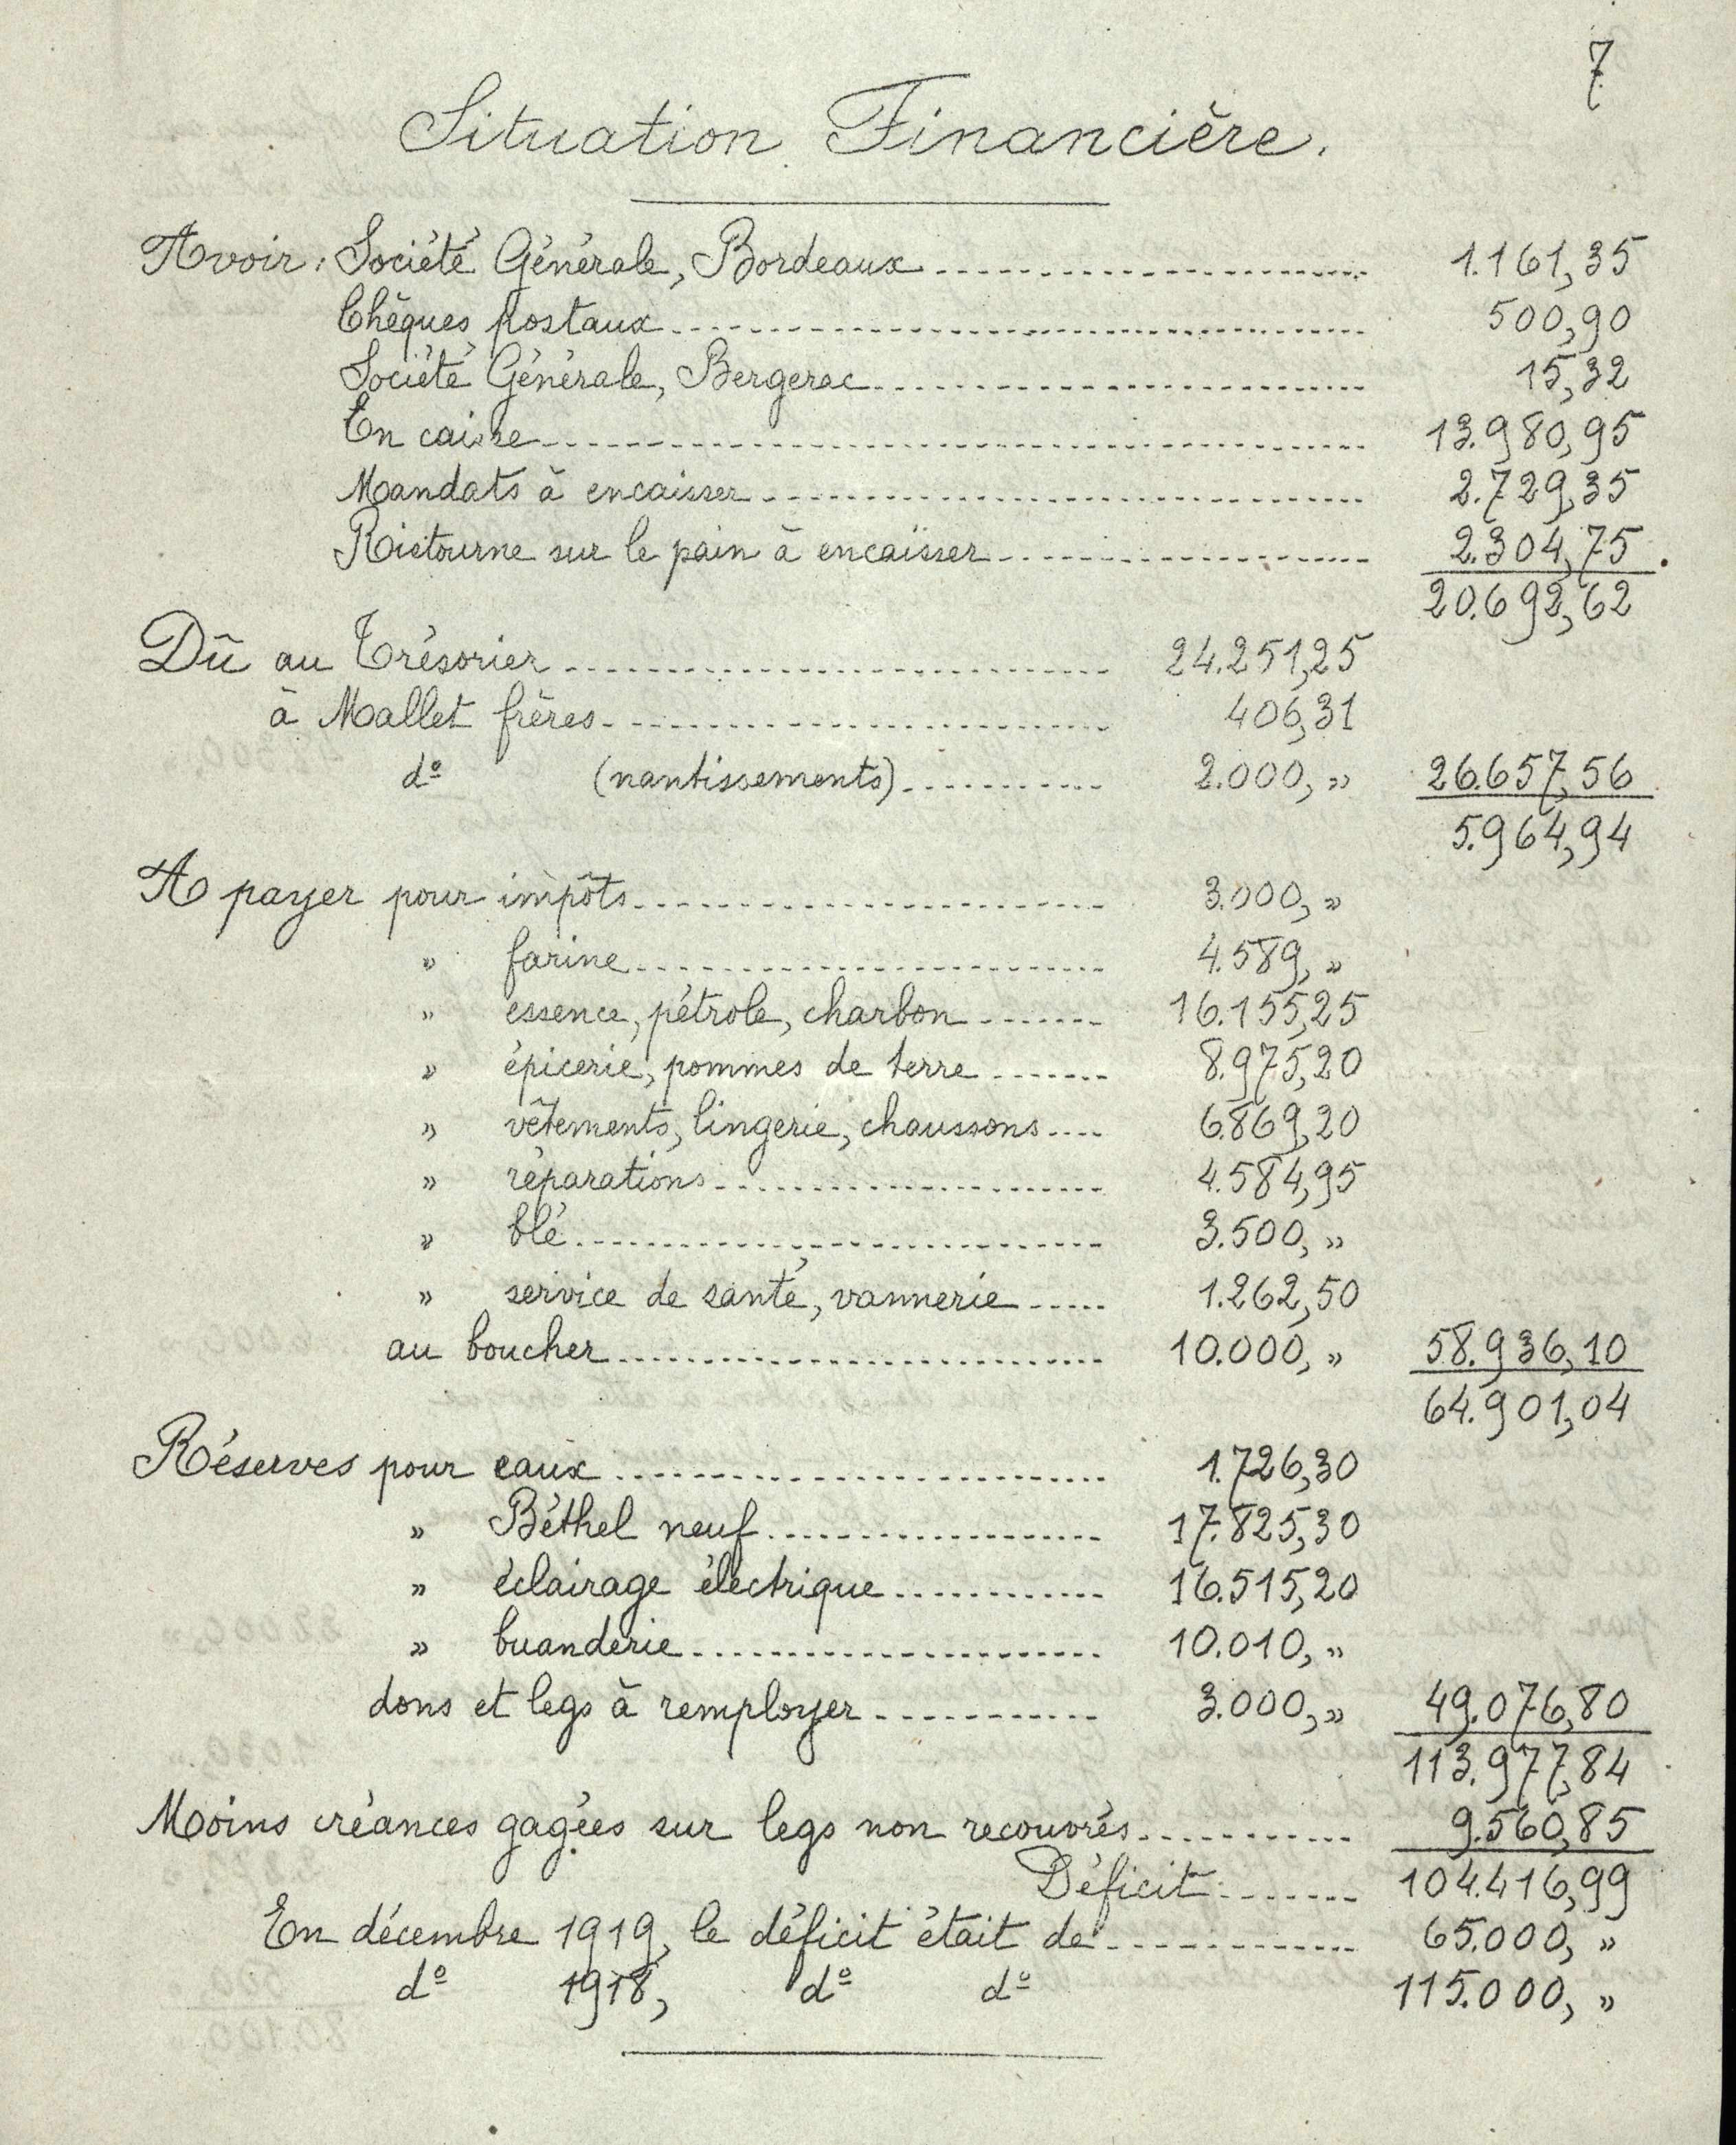 7
Situation Financière.
Avoir: Société Générale, Bordeaux 1.161,35
Chèques postaux 500,90
Société Générale, Bergerac 15,32
En caisse 13.980,95
Mandats à encaisser 2.729,35
Ristourne sur le pain à encaisser 2.304,75
20.692,62
Dû au Trésorier 24.251,25
à Mallet frères 406,31
dº (nantissements) 2.000, » 26.657,56
5.964,94
A payer pour impôts 3.000, »
» farine 4.589, »
» essence, pétrole, charbon 16.155,25
» épicerie, pommes de terre 8.975,20
» vêtements, lingerie, chaussons 6.869,20
» réparations 4.584,95
» blé 3.500, »
» service de santé, vannerie 1.262,50
au boucher 10.000, » 58.936,10
64.901,04
Réserves pour eaux 1.726,30
» Béthel neuf 17.825,30
» éclairage électrique 16.515,20
» buanderie 10.010, »
dons et legs à remployer 3.000, » 49.076,80
113.977,84
Moins créances gagées sur legs non recouvrés 9.560,85
Déficit 104.416,99
En décembre 1919, le déficit était de 65.000, »
dº 1918, dº dº 115.000, »